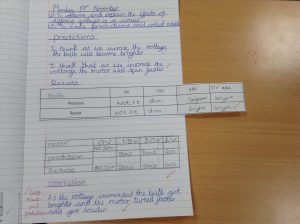 Monday 19th November
LO: To observe and explain the effects of
differing voltages in a circuit.
LO: To make predictions and
predictions
I think as we increase the voltage
the bulb will become brighter
I think that as we increase the
voltage the motor will spin faster
Results
bulb 0V 1.5V 3.0V 4.5V
Prediction Not lit dim brighter bright
Results Not lit dim bright bright
motor 0V 1.5V 3.0V
prediction no spin slow
Results no spin slow
Conclusion
As the voltage increased the bulb got
brighter and the motor turned faster
and got louder.